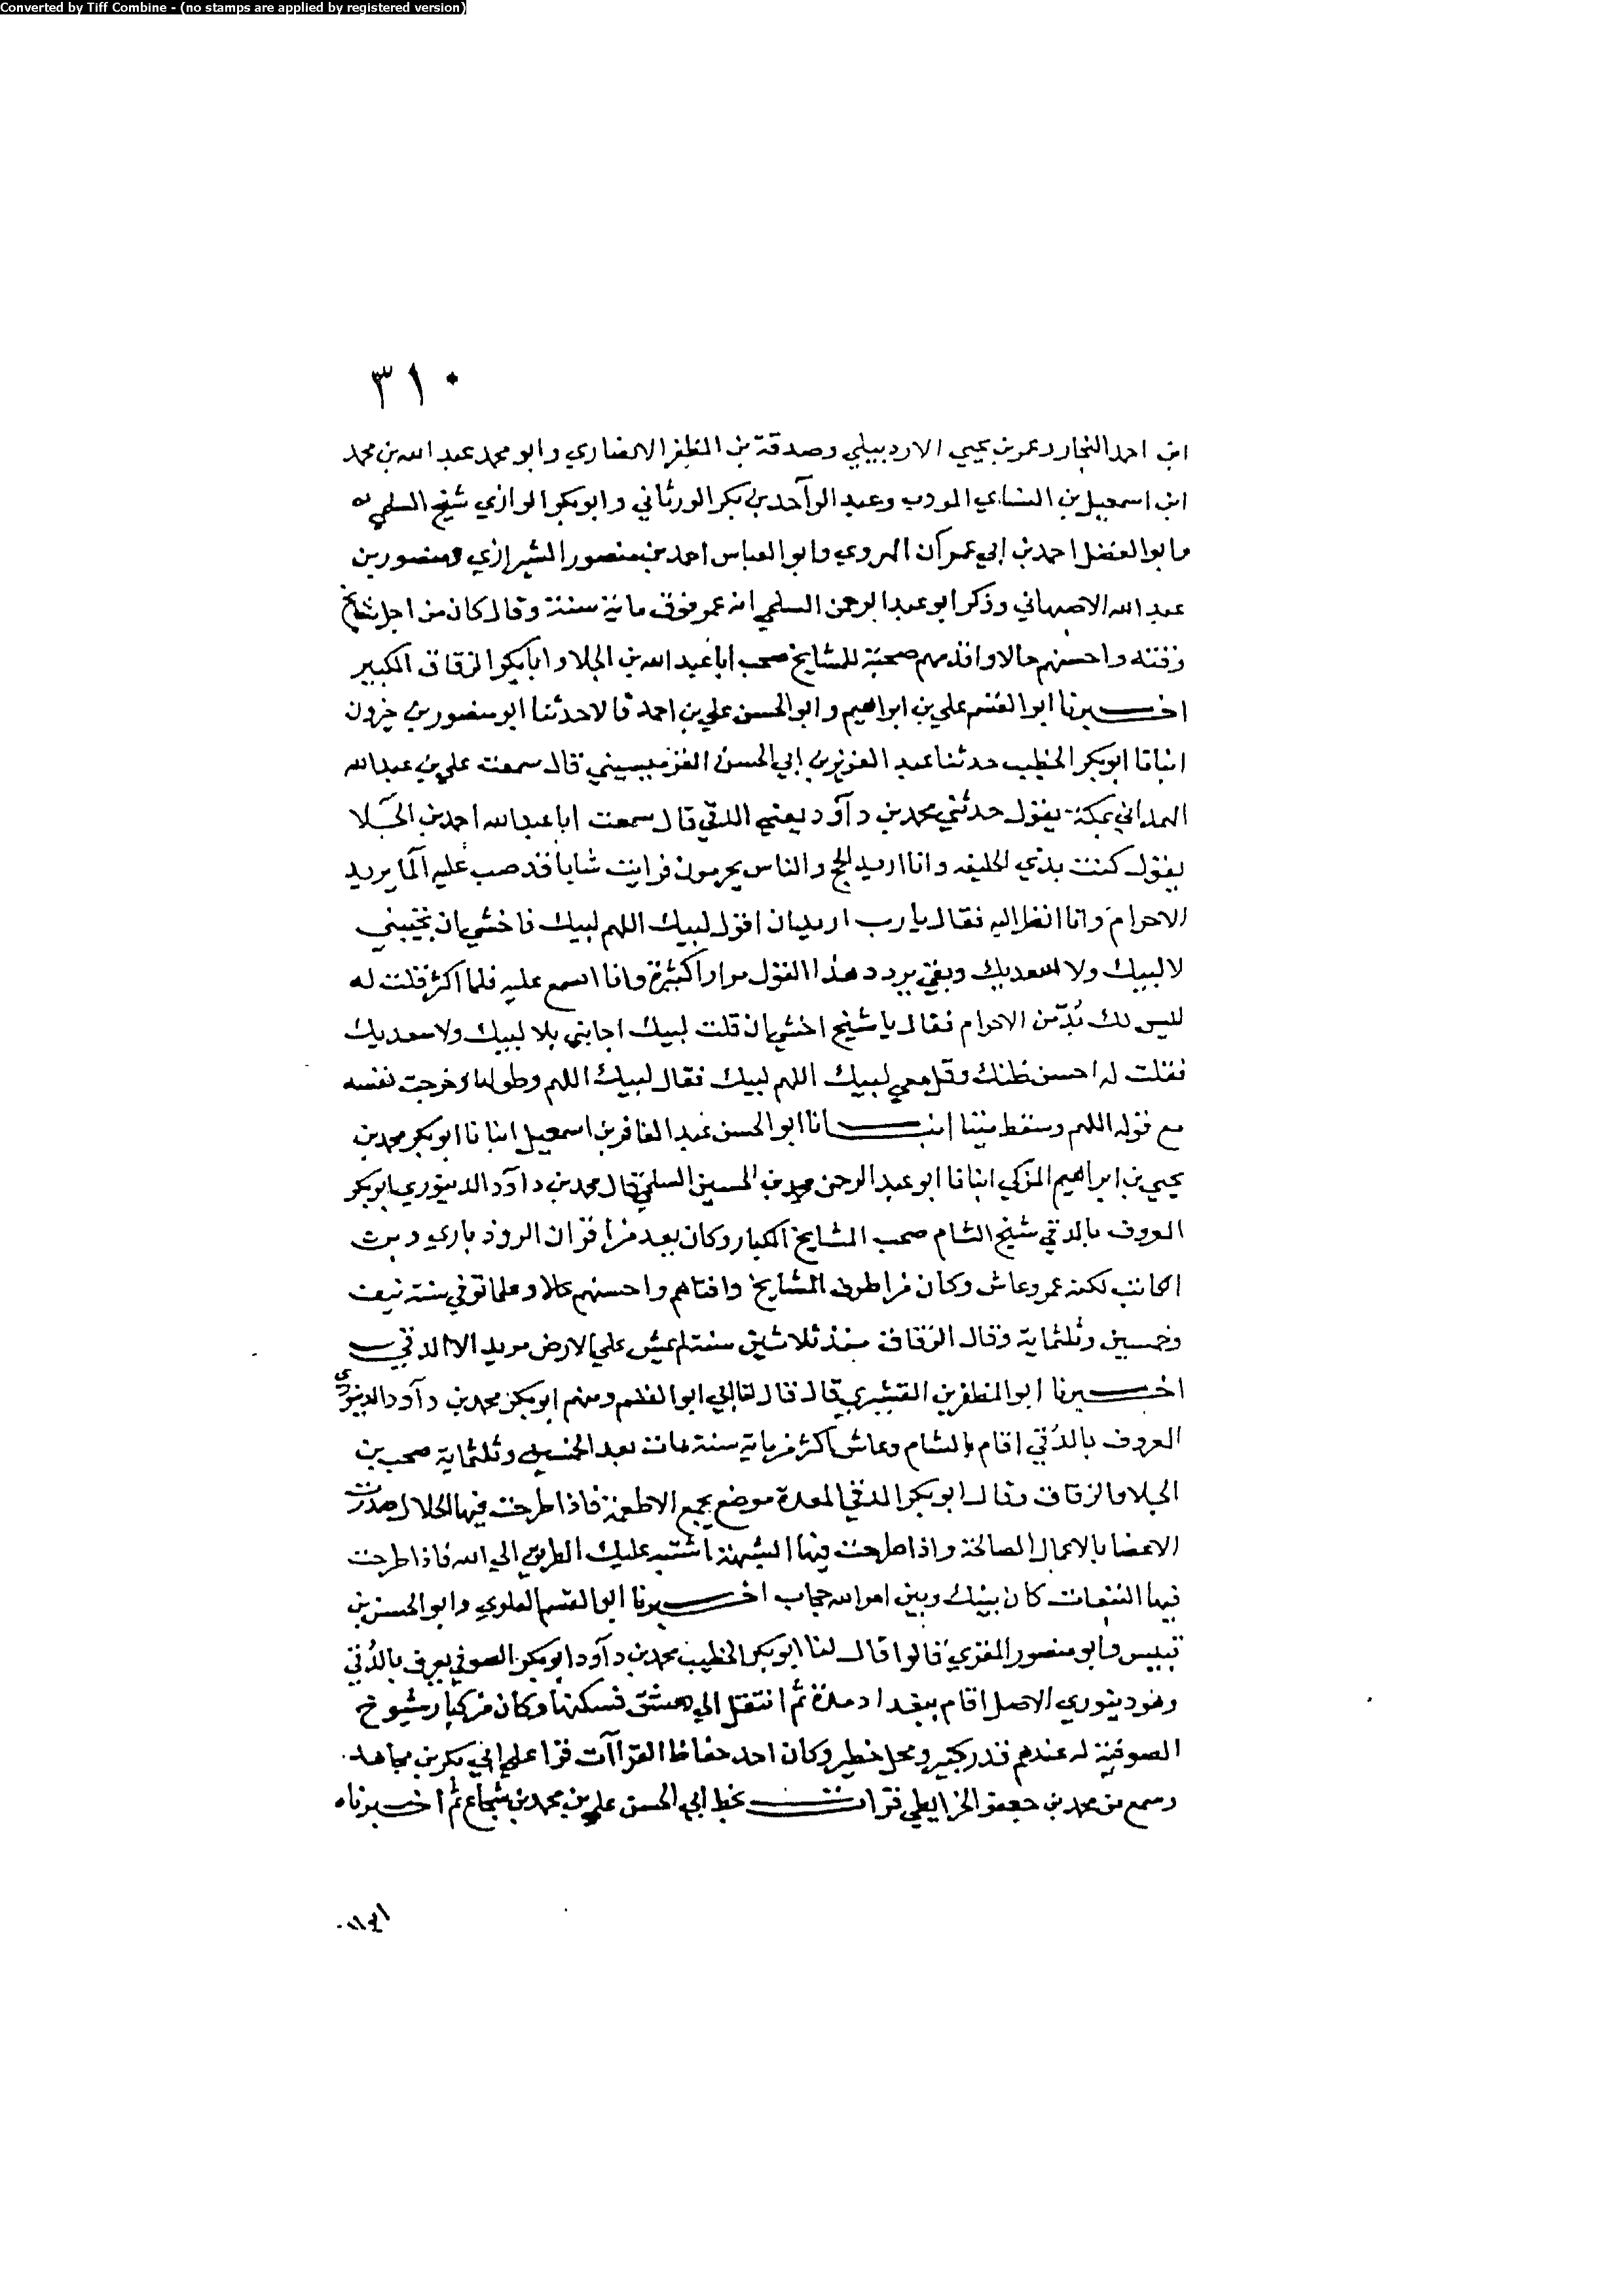 Converted by Tiff Combine - (no stamps are applied by registered version)
٣١٠
ابن احمد النجار وعمر بن يحيي الاردبيلي وصدقة بن المظفر الانصاري وابو محمد عبد الله بن محمد
ابن اسمعيل بن الشاي المودب وعبد الواحد بن بكر الورثاني وابو بكر الرازي شيخ السلمي
وابو الفضل احمد بن ابي عمران الهروي وابو العباس احمد بن منصور الشيرازي ومنصور بن
عبد الله الاصبهاني وذكر ابو عبد الرحمن السلمي انه عمر فوق ماية سنة وقال كان من اجل مشايخ
وقته واحسنهم حالا واقدمهم صحبة للمشايخ صحب ابا عبد الله بن الجلا وابا بكر الزقاق الكبير
اخبرنا ابو القسم علي بن ابراهيم وابو الحسن علي بن احمد قالا حدثنا ابو منصور بن خيرون
انبانا ابو بكر الخطيب حدثنا عبد العزيز بن ابي الحسن القرميسيني قال سمعت علي بن عبد الله
الهمداني بمكة يقول حدثني محمد بن داود يعني الدقي قال سمعت ابا عبد الله احمد بن الجلا
يقول كنت بذي الحليفه وانا اريد الحج والناس يحرمون فرايت شابا قد صب عليه الما يريد
الاحرام وانا انظر اليه فقال يا رب اريد ان اقول لبيك اللهم لبيك فاخشي ان تجيبني
لا لبيك ولا سعديك وبقي يردد هذا القول مرارا كثيرة وانا اسمع عليه فلما اكثر قلت له
ليس لك بد من الاحرام فقال يا شيخ اخشي ان قلت لبيك اجابني بلا لبيك ولا سعديك
فقلت له احسن ظنك وقل معي لبيك اللهم لبيك فقال لبيك اللهم وطولها وخرجت نفسه
مع قوله اللهم وسقط ميتا انبانا ابو الحسن عبد الغافر بن اسمعيل انبانا ابو بكر محمد بن
يحيي بن ابراهيم المزكي انبانا ابو عبد الرحمن محمد بن الحسين السلمي قال محمد بن داود الدينوري ابو بكر
المعروف بالدقي شيخ الشام صحب المشايخ الكبار وكان يعد من اقران الروذباري وبرث
الكاتب لكنه عمر وعاش وكان من اظرف المشايخ وافتاهم واحسنهم حالا وعلما توفي سنة نيف
وخمسين وثلثماية وقال الزقاق منذ ثلاثين سنة لم يمش علي الارض مريد الا الدقي
اخبرنا ابو المظفر بن القشيري قال قال لنا ابي ابو القسم ومنهم ابو بكر محمد بن داود الدينوري
المعروف بالدُقي اقام بالشام وعاش اكثر من ماية سنة مات بعد الخمسين وثلثماية صحب بن
الجلا والزقاق وقال ابو بكر الدقي المعدة موضع يجمع الاطعمة فاذا طرحت فيها الحلال صدرت
الاعضا بالاعمال الصالحة واذا طرحت فيها الشبهة اشتبه عليك الطريق الي الله فاذا طرحت
فيها التبعات كان بينك وبين امر الله حجاب اخبرنا ابو القسم العلوي وابو الحسن بن
قبيس وابو منصور المقري قالوا قال لنا ابو بكر الخطيب محمد بن داود ابو بكر الصوفي يعرف بالدُقي
وهو دينوري الاصل اقام ببغداد مدة ثم انتقل الي دمشق فسكنها وكان من كبار شيوخ
الصوفية له عندهم قدر كبير ومحل خطير وكان احد حفاظ القراآت قرا علي ابي بكر بن مجاهد
وسمع من محمد بن جعفر الخرايطي قرات بخط ابي الحسن علي بن محمد بن شجاع ثم اخبرناه